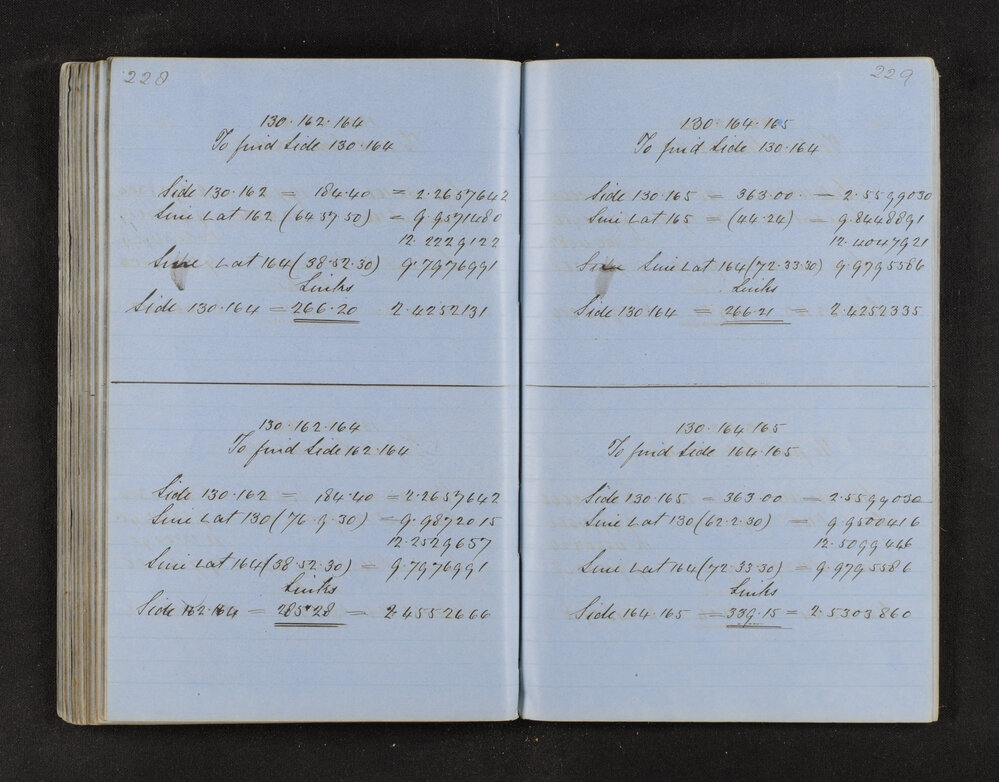 228
130·162·164
To find Side 130·164
Side 130·162 = 184·40 = 2·2657642
Sine Lat 162 (64·57·50) = 9·9571480
12·2229122
Sine Lat 164 (38·52·30) 9·7976991
Links
Side 130·164 = 266·20 2·4252131
130·162·164
To find Side 162·164
Side 130·162 = 184·40 = 2·2657642
Sine Lat 130 (76·9·30) = 9·9872015
12·2529657
Sine Lat 164 (38·52·30) = 9·7976991
Links
Side 162·164 = 285·28 = 2·4552666
229
130·164·165
To find Side 130·164
Side 130·165 = 363·00 = 2·5599030
Sine Lat 165 = (44·24) = 9·8448891
12·4047921
Sine Lat 164 (72·33·30) 9·9795586
Links
Side 130·164 = 266·21 = 2·4252335
130·164·165
To find Side 164·165
Side 130·165 = 363·00 = 2·5599030
Sine Lat 130 (62·2·30) = 9·9500416
12·5099446
Sine Lat 164 (72·33·30) = 9·9795586
Links
Side 164·165 = 339·15 = 2·5303860